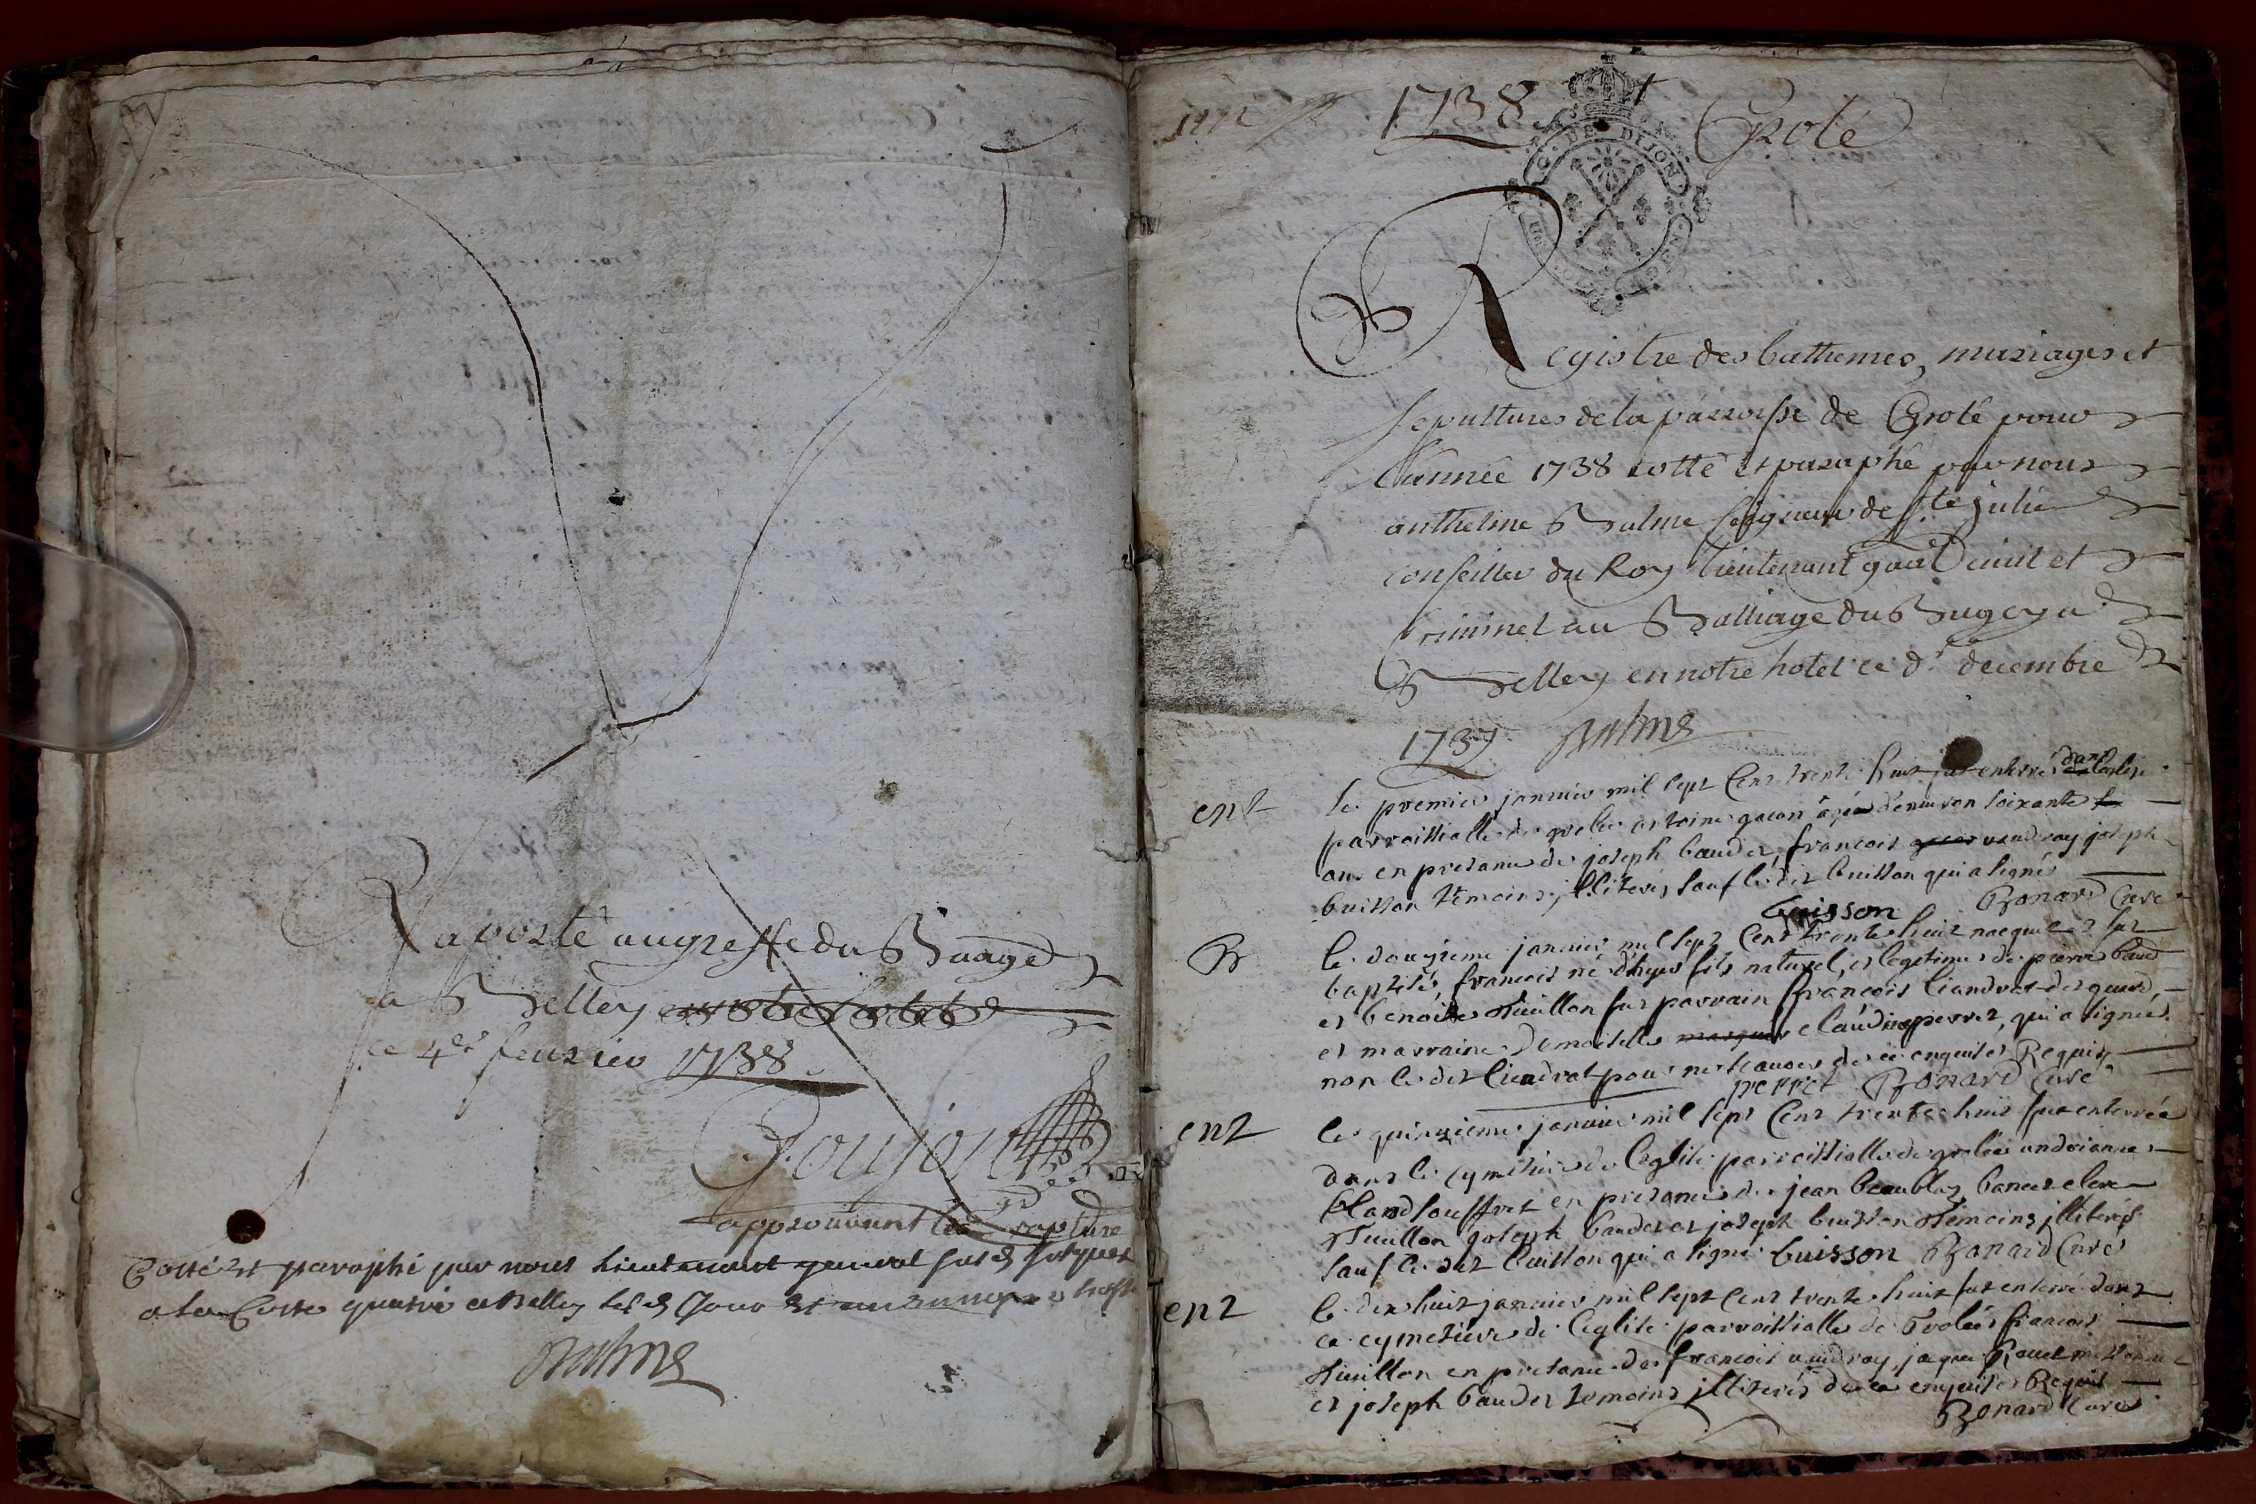 Raporté au greffe du Buage
a Belley
ce 4e feurier 1738
Goujon
approuvant la rapture
Cotté et paraphé par nous Lieutenant general jusques
a la Cotte quatre a Belley les Jour et an
Balme
1738
Grolé
G. DE DIJON
Registre des bathemes, mariages et
sepultures de la parroisse de Grolé pour
l'année 1738 cotté et paraphé par nous
anthelme Balme seigneur de Ste julie
conseiller du Roy lieutenant gnal ciuil et
criminel au Balliage du Bugey a
Belley en notre hotel ce dr decembre
1737 Balme
ent
le premier januier mil sept Cent trente huit fut enterré dans leglise
parroissialle de grolée antoine gacon agée d'enuiron soixante
ans en presance de joseph baudet, francois vendray joseph
buisson témoins jllitérés sauf le dit buisson qui a signé
buisson Bonard Curé
B
le douzieme januier mil sept Cent trente huit nacquit et fut
baptisé francois né d'hyer fils naturel, et legetime de pierre baud
et benoite Thuillon fut parrain françois liandrat
et marraine Demoiselle claudine perret, qui a signée
non le dit liandrat pour ne scauoir de ce enquit et Requis
perret Bonard Curé
ent
le quinzieme januier mil sept Cent trente huit fut enterrée
dans le cymetiere de leglise parroissialle de grolée andrianne
Chandsouffret en presance de jean beaublaz banet clerc
Thuillon joseph baudet et joseph buisson témoins jllitérés
sauf le dit buisson qui a signé buisson Bonard Curé
ent
le dix huit januier mil sept cent trente huit fut enterré dans
le cymetiere de leglise parroissialle de Grolée francois
Thuillon en presance de francois vendray, jaque
et joseph baudet temoins jllitérés de ce enquit et Requit
Bonard Curé